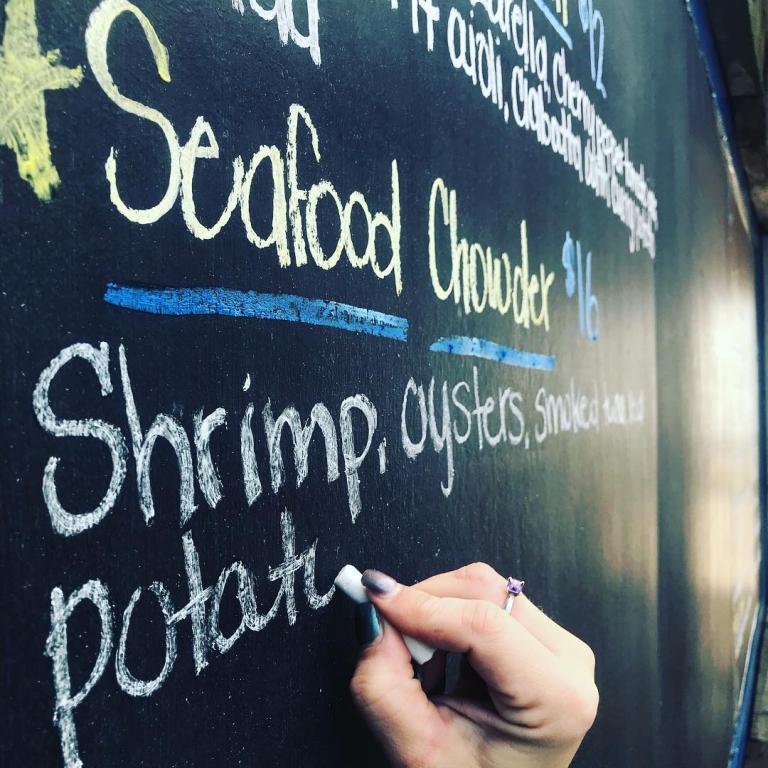 $12
aioli, ciabatta
Seafood Chowder $16
Shrimp, oysters, smoked tuna
potat